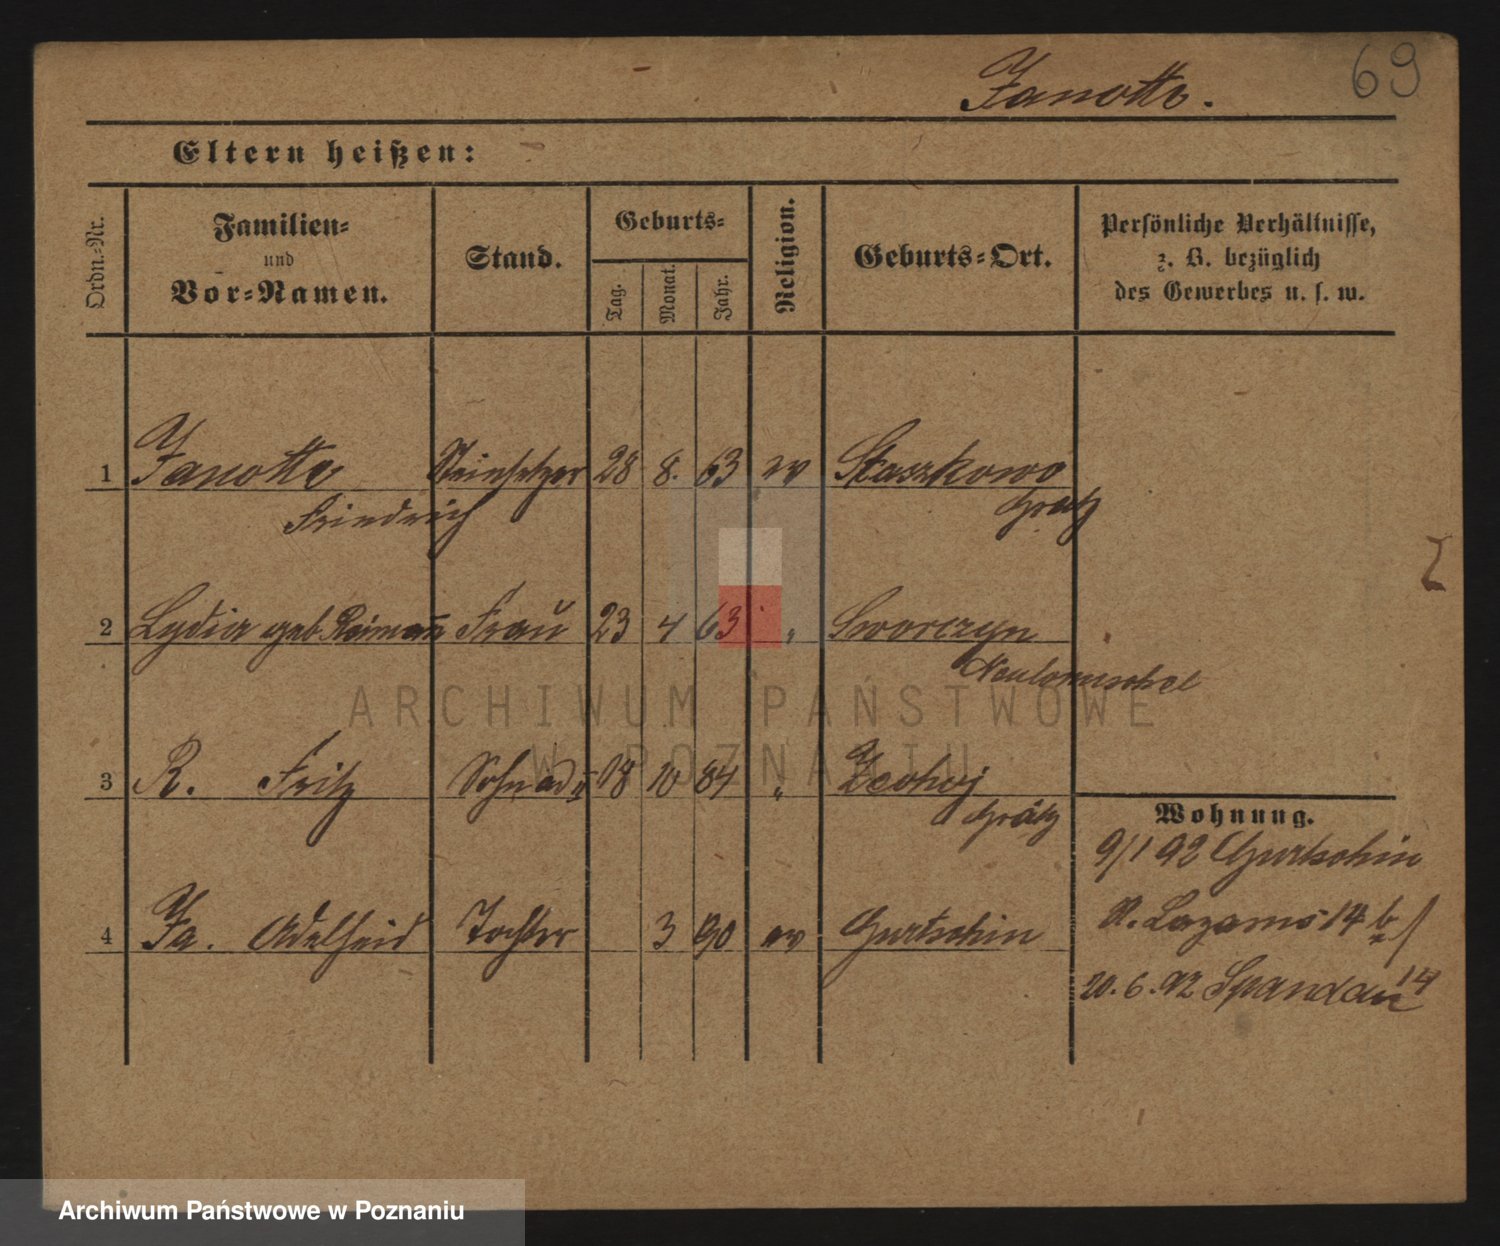 69
Janotte.
Eltern heißen:
Ordn.-Nr.
Familien-
und
Vor-Namen.
Stand.
Geburts-
Tag.
Monat.
Jahr.
Religion.
Geburts-Ort.
Persönliche Verhältnisse,
z. B. bezüglich
des Gewerbes u. s. w.
1 Janotte Steinsetzer 28 8. 63 ev Staszkowo
Friedrich Grätz
2 Lydia geb. Frau 23 4 63 "
Neutomischel
3 R. Fritz Sohn 18 10 84 "
Grätz
Wohnung.
9/1 92 Gurtschin
4 Ja. Adelheid Tochter 3 90 ev Gurtschin
St. Lazarus 14 b
20. 6. 92 Spandau 14
ARCHIWUM PAŃSTWOWE
W POZNANIU
Archiwum Państwowe w Poznaniu